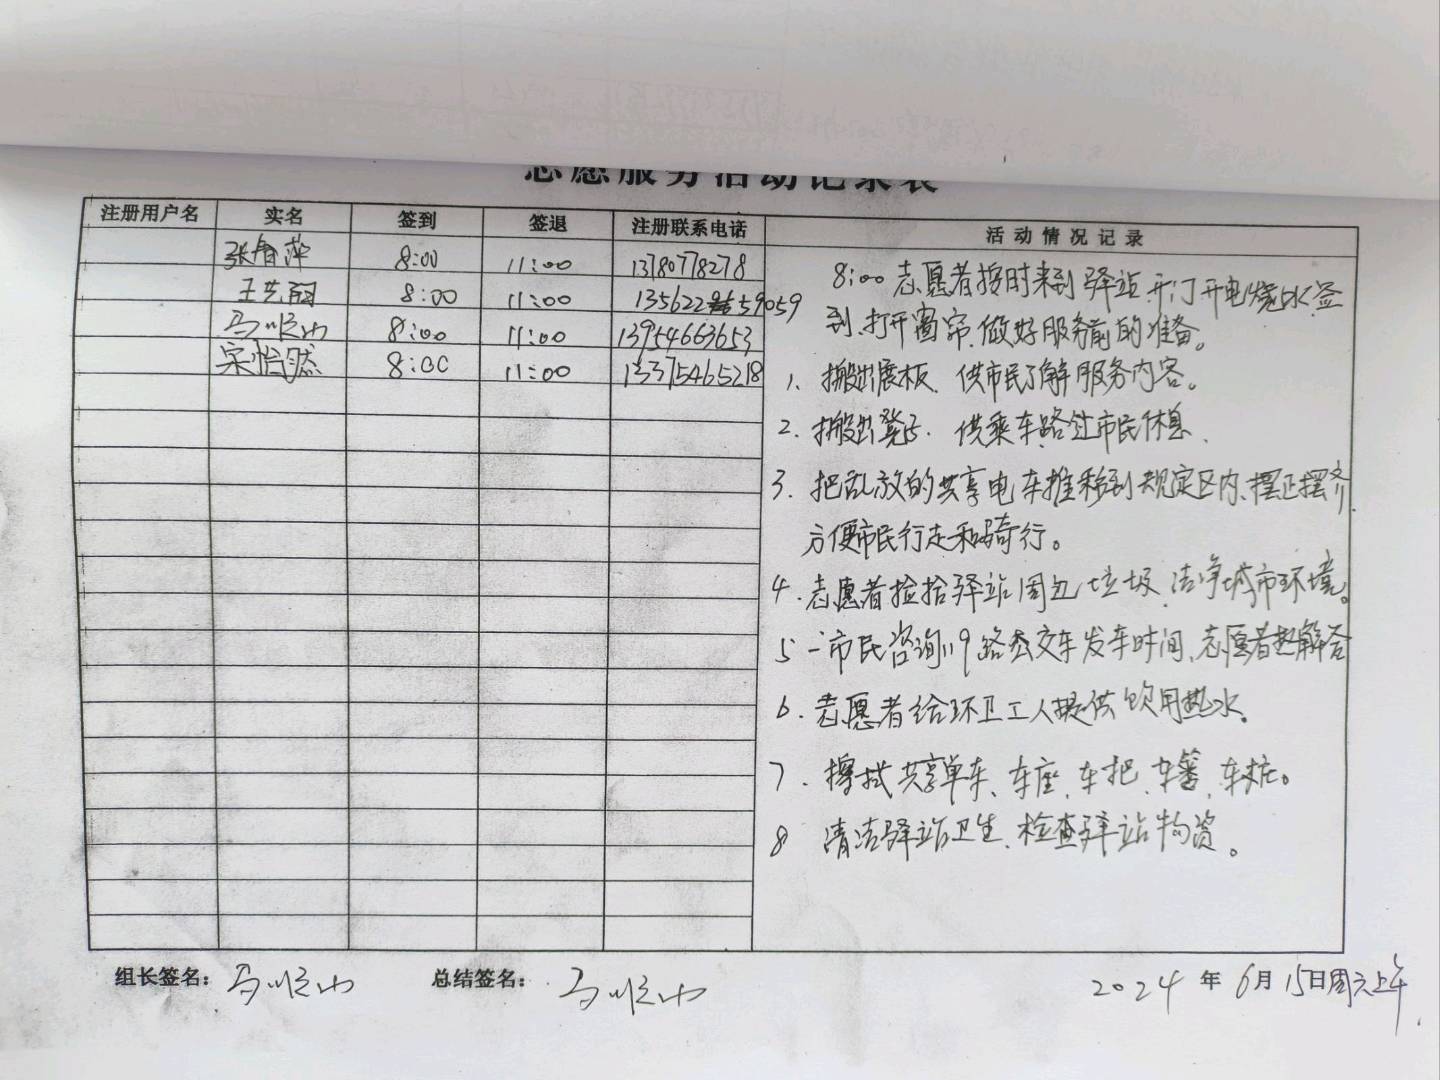 志愿服务活动记录表
注册用户名 实名 签到 签退 注册联系电话 活动情况记录
张 萍 8:00 11:00 13780778278
王艺 8:00 11:00 135622 59059
马顺 8:00 11:00 13954663653
宋怡然 8:00 11:00 13375465218
8:00志愿者按时来到驿站开门开电烧水签
到、打开窗帘、做好服务前的准备。
1、搬出展板、供市民了解服务内容。
2、搬出凳子、供乘车路过市民休息、
3、把乱放的共享电车推移到规定区内、摆正摆齐
方便市民行走和骑行。
4、志愿者捡拾驿站周边垃圾、洁净城市环境。
5 一市民咨询119路公交车发车时间、志愿者热解答
6、志愿者给环卫工人提供饮用热水。
7、擦拭共享单车、车座、车把、车篓、车桩。
8 清洁驿站卫生、检查驿站物资。
组长签名：马顺 总结签名：马顺 2024年6月15日周六上午